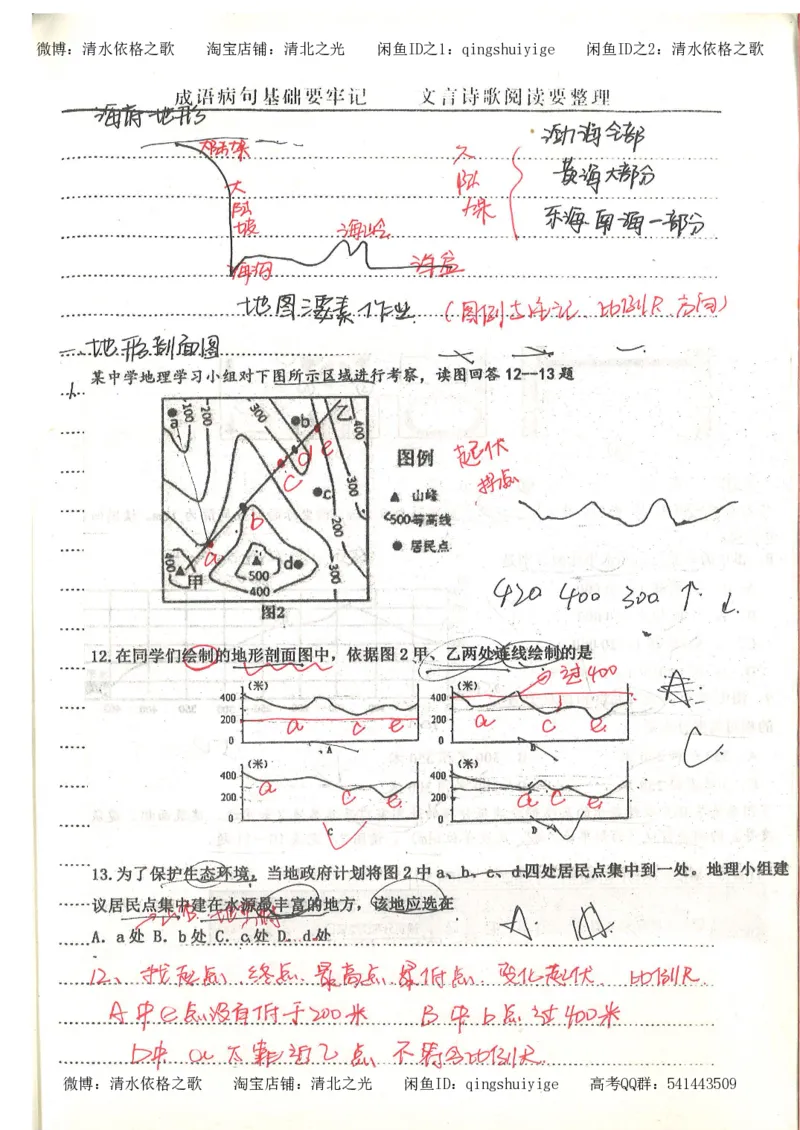 微博：清水依格之歌 淘宝店铺：清北之光 闲鱼ID之1：qingshuiyige 闲鱼ID之2：清水依格之歌
成语病句基础要牢记 文言诗歌阅读要整理
海府地形
渤海全部
大陆架
黄海大部分
东海南海一部分
大陆坡
海岭
海沟
海盆
地图要素作业（图例与注记 比例尺 方向）
一 地形剖面图
某中学地理学习小组对下图所示区域进行考察，读图回答 12--13 题
a 100 200 300 b 乙 400
d e
c
c 300
b 200
a
400 甲 500 400 d 300
图2
图例
▲ 山峰
500等高线
● 居民点
起伏
拐点
420 400 300 ↑ ↓
12.在同学们绘制的地形剖面图中，依据图 2 甲、乙两处连线绘制的是
过400
(米) 400 200 0 a c e A
(米) 400 200 0 a c e B
(米) 400 200 0 a c e C
(米) 400 200 0 a c e D
A.
C
13.为了保护生态环境，当地政府计划将图 2 中 a、b、c、d 四处居民点集中到一处。地理小组建
议居民点集中建在水源最丰富的地方，该地应选在
A．a 处 B．b 处 C．c 处 D．d 处
A.
12、找起点、终点、最高点、最低点、变化起伏 比例尺
A 中 e 点没有低于200米 B 中 b 点 过400米
D中 a 太靠近乙点 不符合比例尺
微博：清水依格之歌 淘宝店铺：清北之光 闲鱼ID：qingshuiyige 高考QQ群：541443509